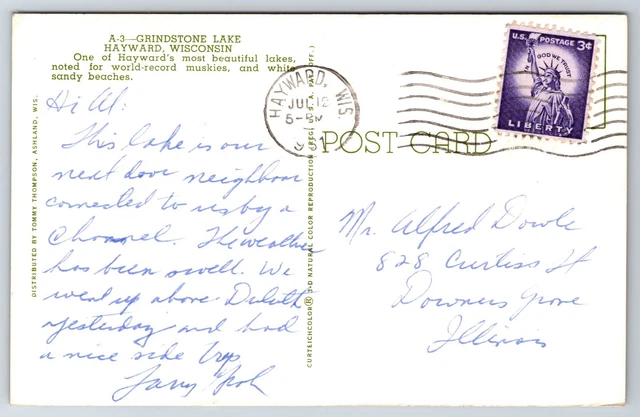 A-3—GRINDSTONE LAKE
HAYWARD, WISCONSIN
One of Hayward's most beautiful lakes,
noted for world-record muskies, and white
sandy beaches.
Hi Al:
This lake is our
next door neighbour
connected to us by a
Channel. The weather
has been swell. We
went up above Duluth
yesterday and had
a nice side trip
Larry
DISTRIBUTED BY TOMMY THOMPSON, ASHLAND, WIS.
CURTEICHCOLOR® 3-D NATURAL COLOR REPRODUCTION (REG. U.S.A. PAT. OFF.)
HAYWARD, WIS.
JUL 12
5-PM
U.S. POSTAGE 3¢
IN GOD WE TRUST
LIBERTY
POST CARD
Mr. Alfred Dowle
828 Curtiss St
Downers Grove
Illinois